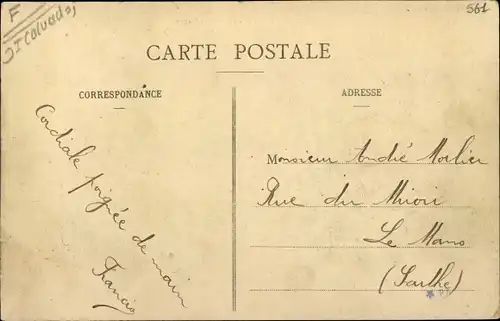 F
561
CARTE POSTALE
CORRESPONDANCE
ADRESSE
Cordiale poignée de main
Francis
Monsieur André Morlier
Rue du Miroir
Le Mans
(Sarthe)